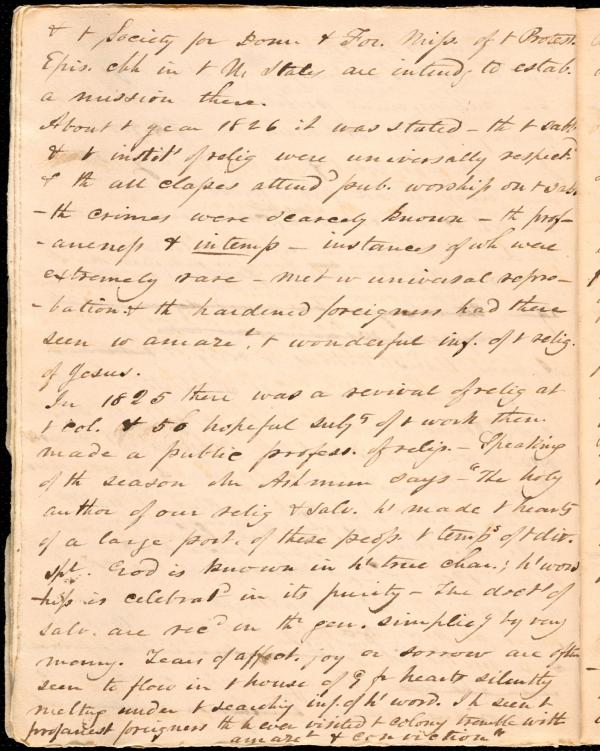 & t Society for Dom. & For. Miss. of t Protest.
Epis. chh in t U. States are intendg to estab.
a mission there.
About t year 1826 it was stated – th t sabb.
& t instits of relig were universally respectd
& th all classes attendd pub. worship on t sab.
– th crimes were scarcely known – th prof-
-aneness & intemp – instances of wh were
extremely rare – met w universal repro-
-bation & th hardened foreigners had there
seen w amazet, t wonderful inf. of t relig.
of Jesus.
In 1825 there was a revival of relig at
t col. & 50 hopeful subjs of t work then
made a public profess. of relig. – Speaking
of th season Mr Ashmun says – "The holy
author of our relig & salv. hs made t hearts
of a large port. of these peops. t temps of t div.
spt. God is known in hs true char.; hs wor-
-ship is celebratd in its purity – The docts of
salv. are recd in thr gen. simplicy by very
many. Tears of affect. joy or sorrow are often
seen to flow in t house of G fr hearts silently
melting under t searching inf. of hs word. I h seen t
profanest foreigners th h ever visited t colony tremble with
amazet & conviction"